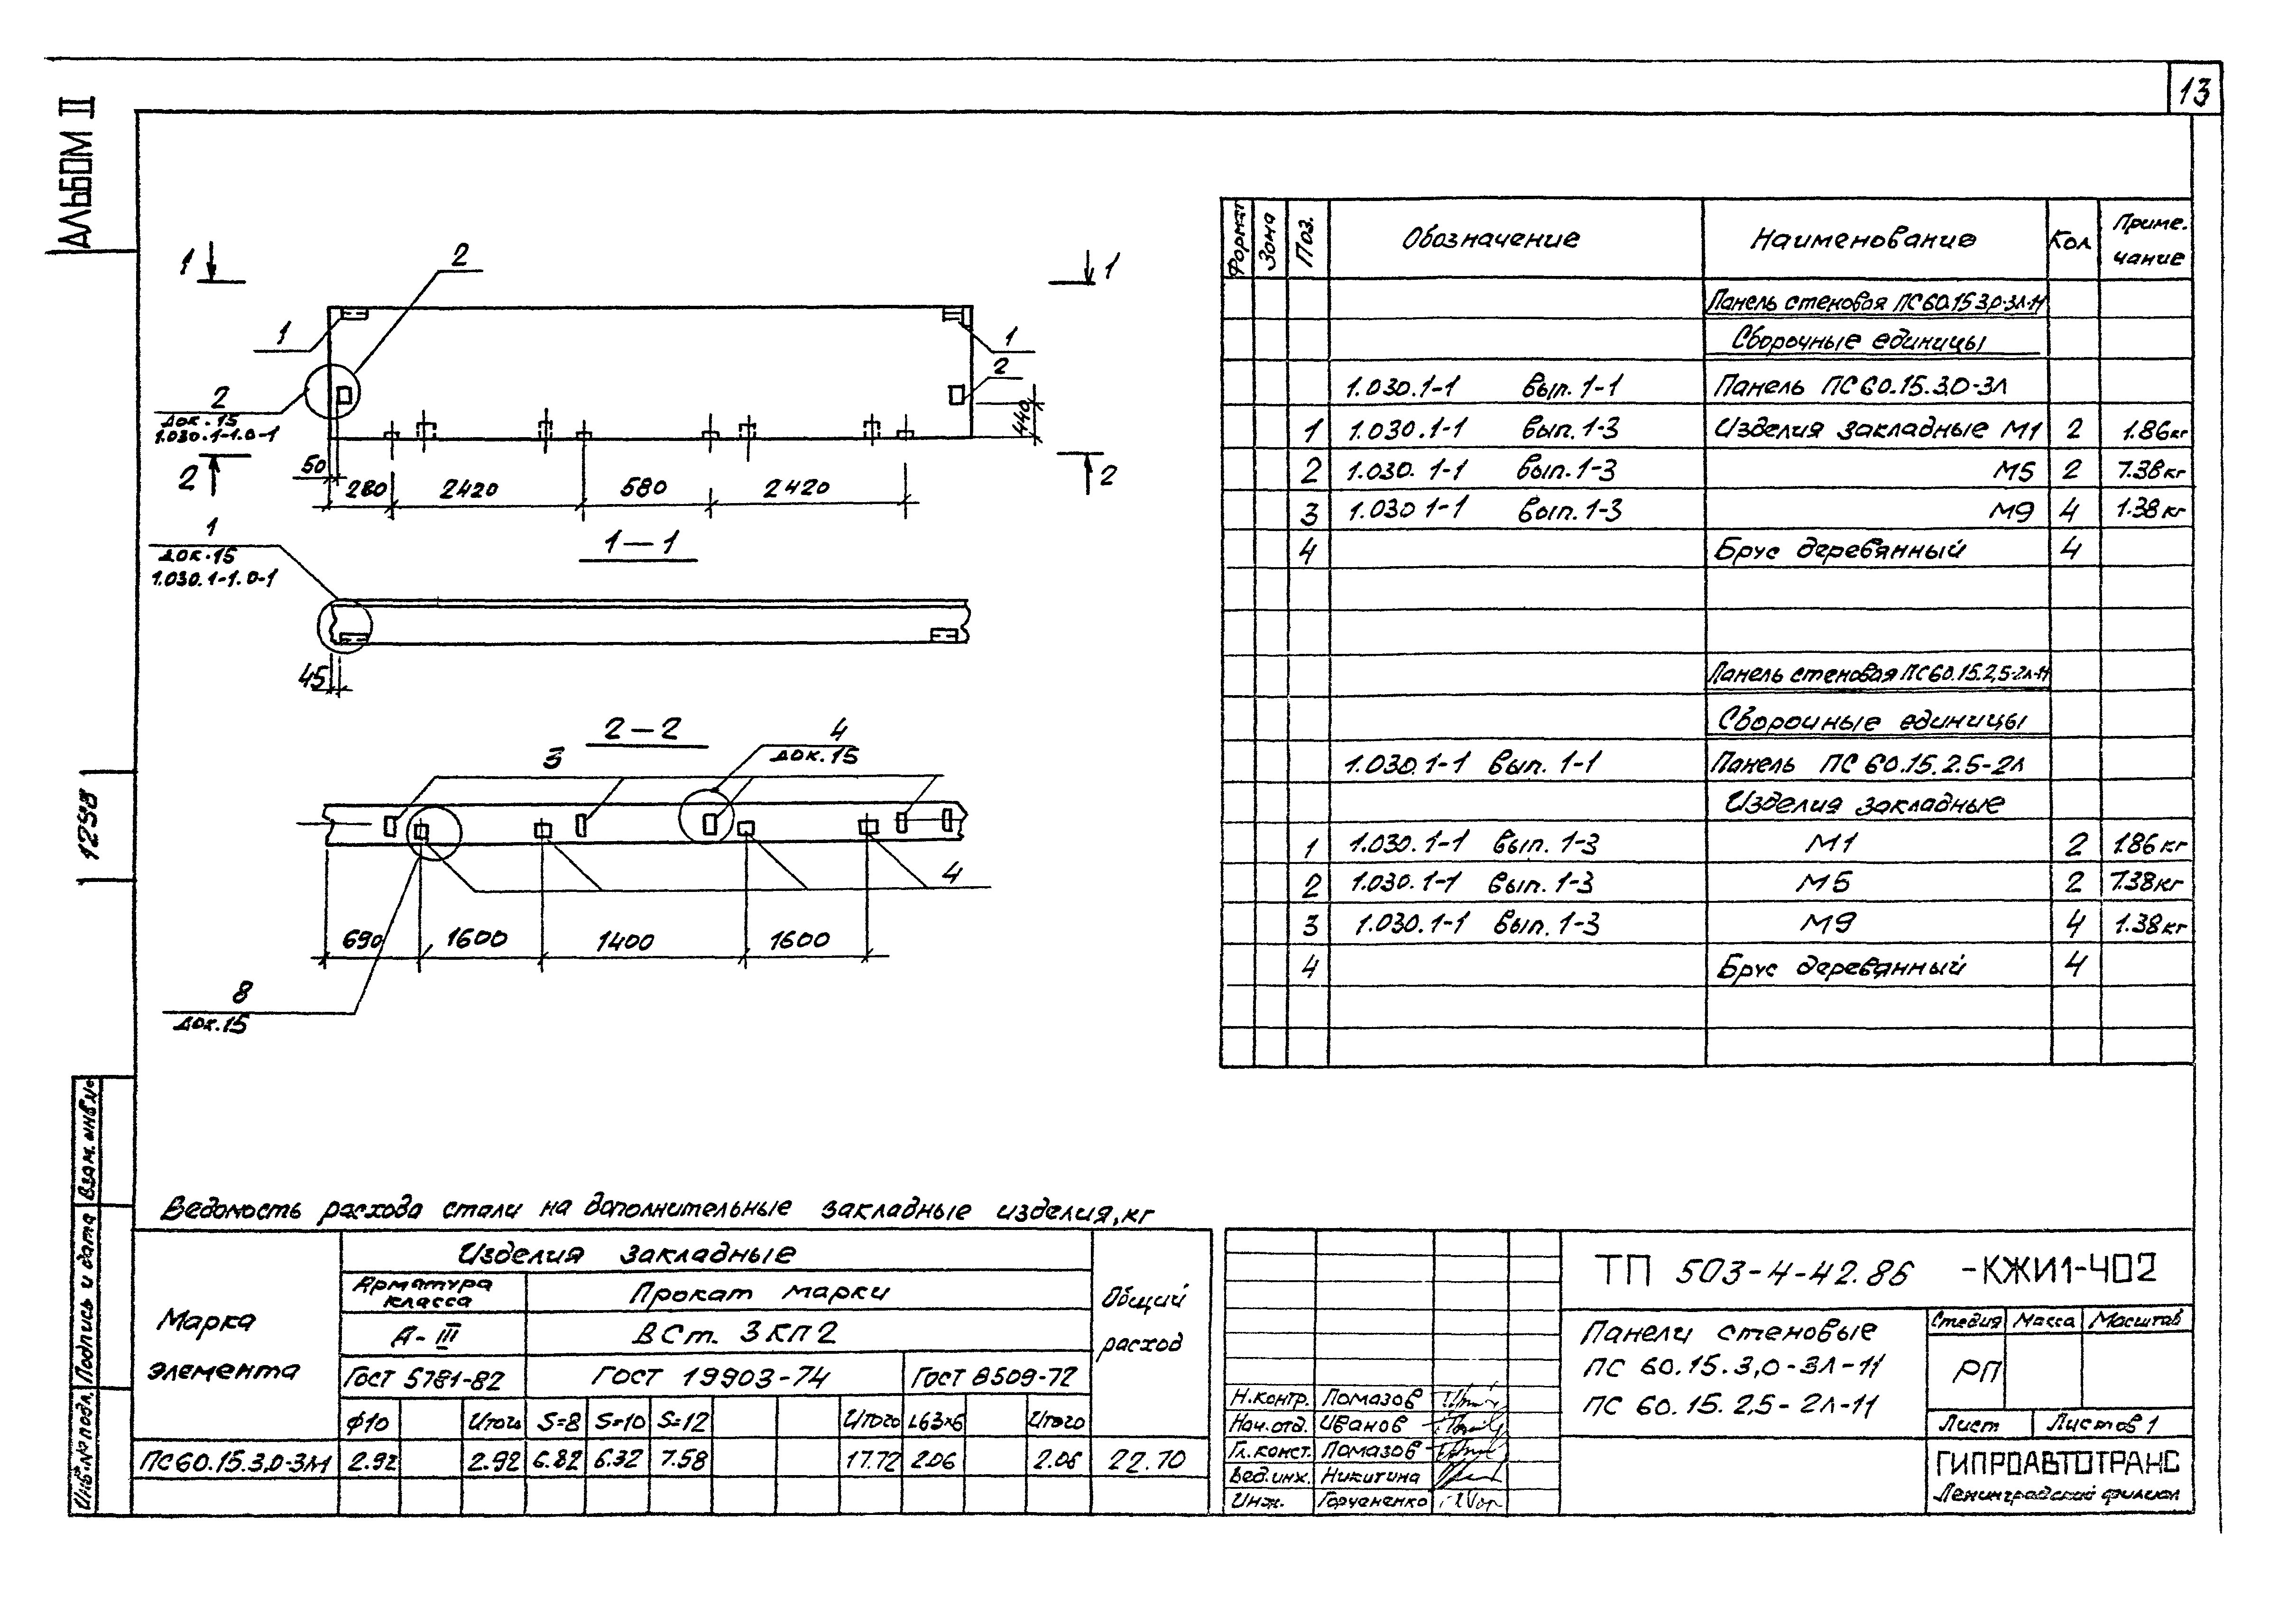 13
АЛЬБОМ III
1 1
2
1 1
2
2
док.15
1.030.1-1.0-1
440
2 2
50
280 2420 580 2420
1
док.15
1.030.1-1.0-1
1—1
45
2—2
3
4
док.15
4
690 1600 1400 1600
8
док.15
1258
Взам.инв.№
Подпись и дата
Инв.№ подл.
Формат Зона Поз. Обозначение Наименование Кол Приме-
чание
Панель стеновая ПС60.15.3,0-3Л-11
Сборочные единицы
1.030.1-1 вып.1-1 Панель ПС60.15.3,0-3Л
1 1.030.1-1 вып.1-3 Изделия закладные М1 2 1.86кг
2 1.030.1-1 вып.1-3 М5 2 7.38кг
3 1.030 1-1 вып.1-3 М9 4 1.38кг
4 Брус деревянный 4
Панель стеновая ПС60.15.2,5-2Л-11
Сборочные единицы
1.030.1-1 вып.1-1 Панель ПС 60.15.2.5-2Л
Изделия закладные
1 1.030.1-1 вып.1-3 М1 2 1.86 кг
2 1.030.1-1 вып.1-3 М5 2 7.38кг
3 1.030.1-1 вып.1-3 М9 4 1.38кг
4 Брус деревянный 4
Ведомость расхода стали на дополнительные закладные изделия,кг
Марка
элемента
Изделия закладные
Арматура
класса
Прокат марки
Общий
расход
А-III ВСт. 3кп2
Гост 5781-82 ГОСТ 19903-74 Гост 8509-72
Ф10 Итого S=8 S=10 S=12 Итого L63×6 Итого
ПС60.15.3,0-3Л-1 2.92 2.92 6.82 6.32 7.58 17.72 2.06 2.06 22.70
ТП 503-4-42.86 -КЖИ1-402
Панели стеновые
ПС 60.15.3,0-3Л-11
ПС 60.15.2,5-2Л-11
Стадия Масса Масштаб
РП
Лист Листов 1
ГИПРОАВТОТРАНС
Ленинградский филиал
Н.контр. Помазов
Нач.отд. Иванов
Гл.конст. Помазов
Вед.инж. Никитина
Инж.